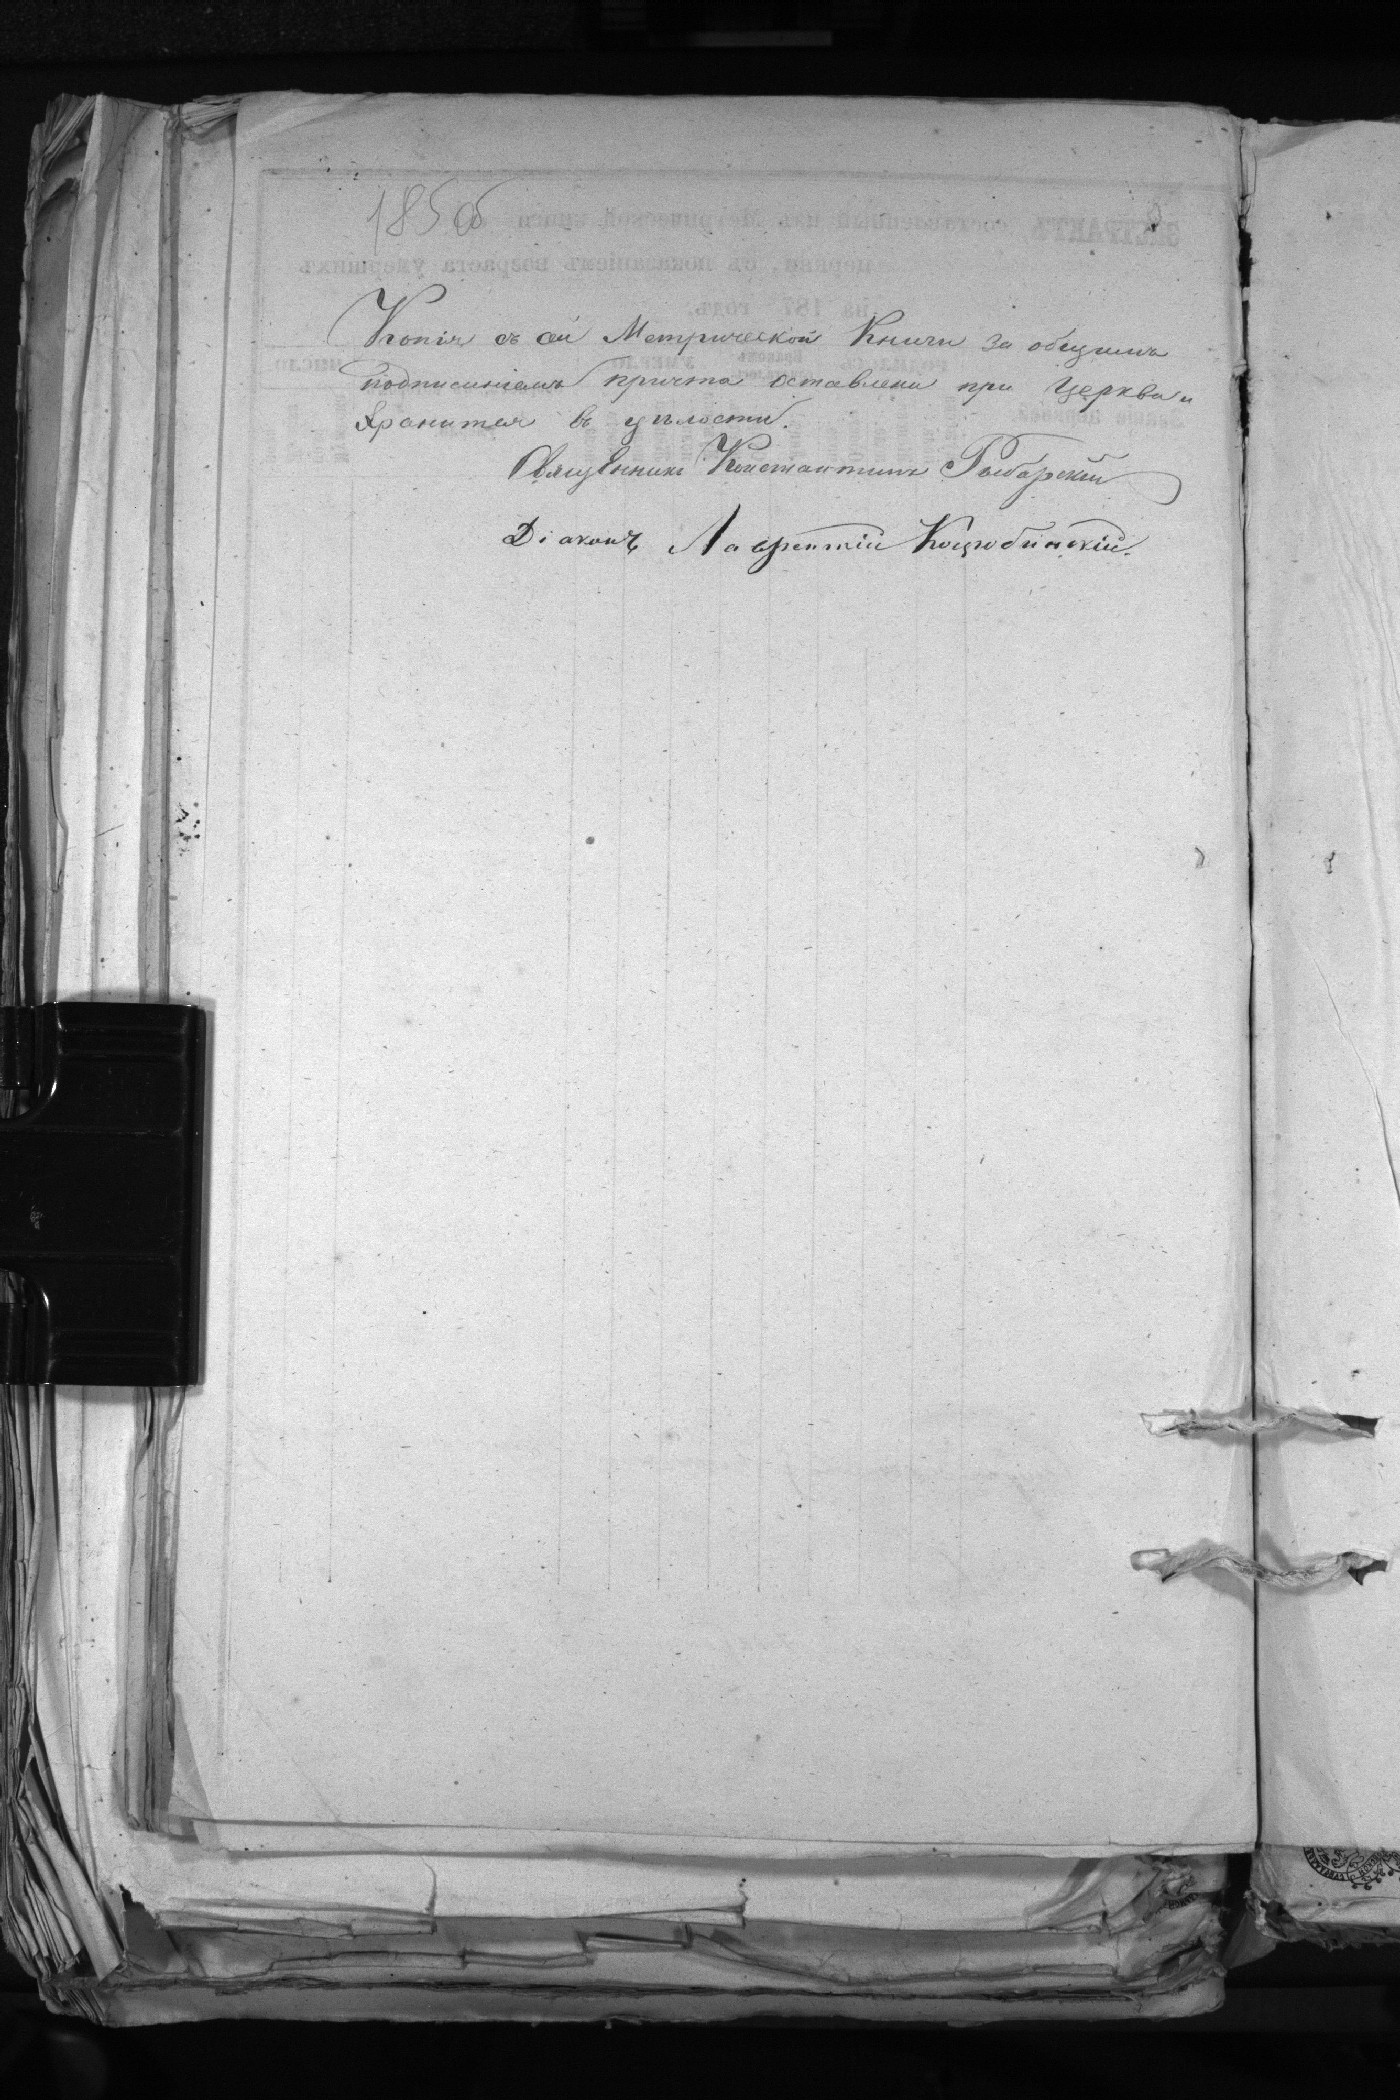 185об
Копія съ сей Метрической Книги за общимъ
подписаніемъ причта оставлена при Церкви и
хранится въ цѣлости.
Священникъ Константинъ
Діаконъ Лаврентій Коцюбинскій.